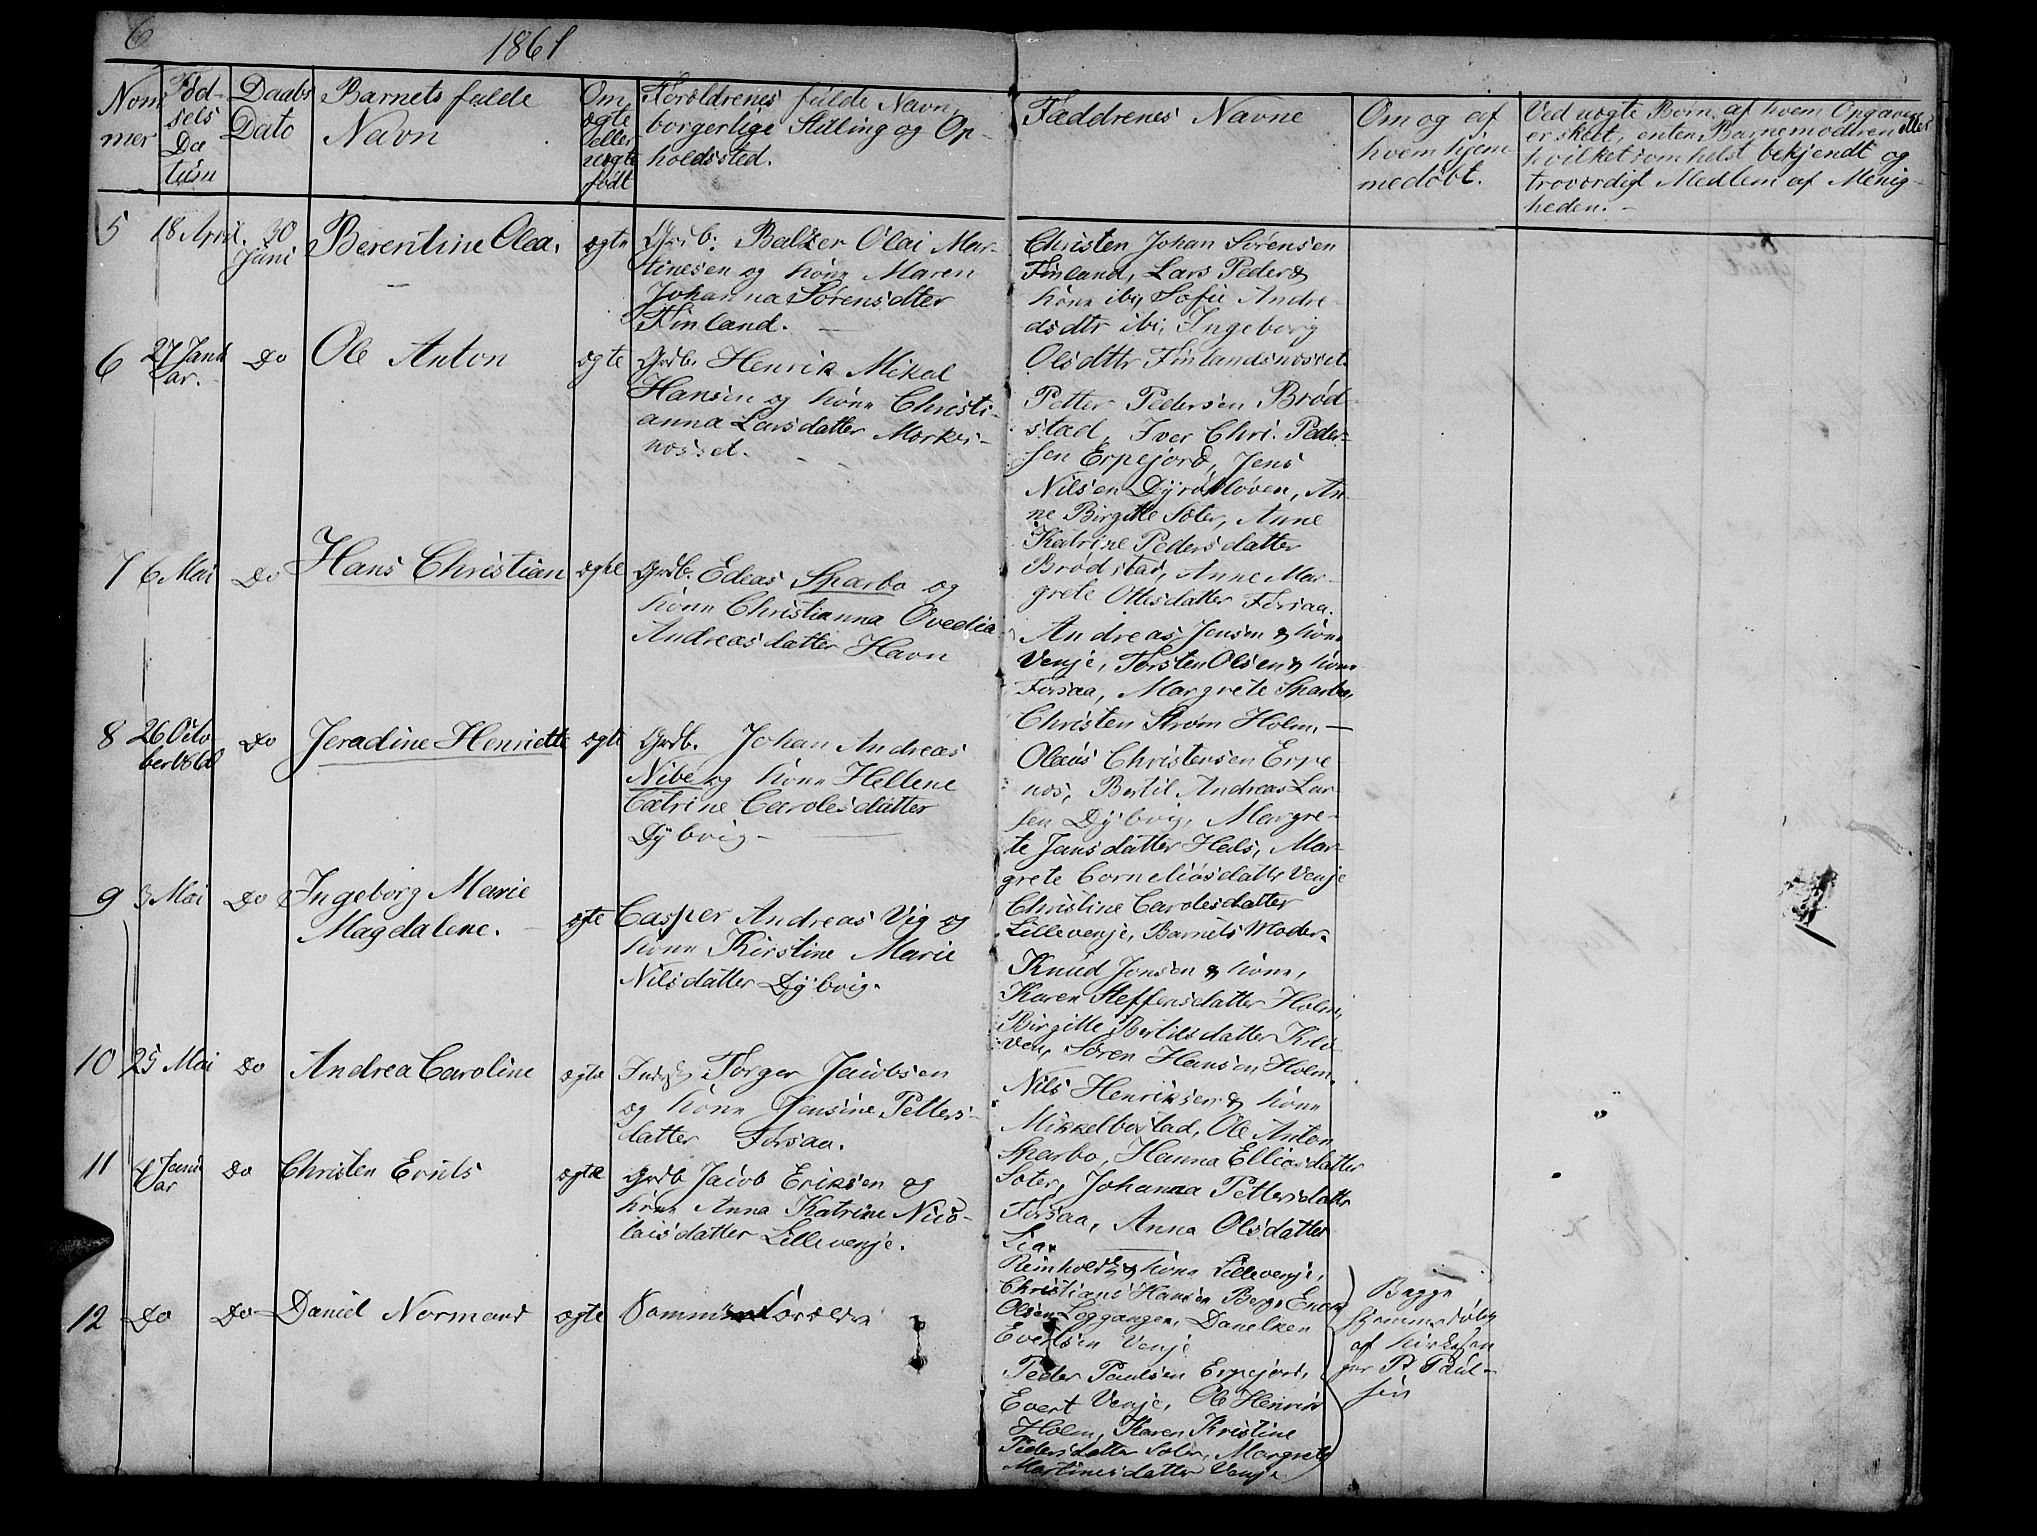 6
1861
Nom
mer
Fød-
sels
Da
tum
Daabs
Dato
Barnets fulde
Navn
Om
ægte
eller
uægte
født
Forældrenes fulde Navn,
borgerlige Stilling og Op-
holdssted.
Faddrenes Navne
Om og af
hvem hjem
medøbt.
Ved uægte Børn, af hvem Opgaven
er skét, enten Barnemodren eller
hvilketsomhelst bekjendt og
troværdigt Medlem af Menig-
heden. -
5
18 April.
30
Juni
Berentine Olea.
ægte
Grdb. Balzer Olai Mar-
tinesen og kone Maren
Johanna Sørensdtter
Finland. -
Christen Johan Sørensen
Finland, Lars Peder &
kone ibi, Sofie Andre-
dsdtr ibi, Ingeborg
Olsdttr Finlandsnæsset.
6
27 Janu
ar.
Do
Ole Anton
ægte
Grdb. Henrik Mikal
Hansen og kone Christi-
anna Larsdatter Mærkes-
næsset. -
Petter Pedersen Brød-
stad, Iver Chri. Peder-
sen Erpejord, Jens
Nilsen Dyrøkløven, An-
ne Birgitte Sæter, Anne
Katrine Pedersdatter
Brødstad, Anne Mar-
grete Ottesdatter Forsaa.
7
6 Mai
Do
Hans Christian
ægte
Grdb. Edeas Sparbo og
kone Christianna Ovedia
Andreasdatter Havn
Andreas Jensen & kone
Venje, Torsten Olsen & kone
Forsaa, Margrete Sparbo,
Christen Strøm Holm. -
8
26 Octo
ber 1860
Do
Jeradine Henriette
ægte
Grdb. Johan Andreas
Nibe og kone Hellene
Catrine Carolesdatter
Dybvig -
Olaus Christensen Erpe-
næs, Bertil Andreas Lar-
sen Dybvig, Margre-
te Jansdatter Hals, Mar-
grete Corneliusdatter Venje
Christine Carolesdatter
Lillevenje, Barnets Moder.
9
3 Mai
Do
Ingeborg Marie
Magdalene.
ægte
Casper Andreas Vig og
kone Kirstine Marie
Nilsdatter Dybvig.
Knud Jonsen & kone,
Karen Steffensdatter Holm,
Birgitte Bertilsdatter Klø
ven, Søren Hansen Holm.
10
25 Mai
Do
Andrea Caroline
ægte
Torger Jacobsen
og kone Jensine Petters-
datter Forsaa.
Nils Henriksen & kone
Mikkelbostad, Ole Anton
Sparbo, Hanna Elliasdatter
Sæter, Johanna Pettersdattr
Forsaa, Anna Olsdatter
Lia.
11
Janu
ar
Do
Christen Eriks
ægte
Grdb Jacob Eriksen og
kone Anna Katrine Nico-
laisdatter Lillevenje.
Reinholdt & kone Lillevenje,
Christians Hansen Berg, Enok
Olsen Leggangen, Danelken
Evertsen Venje
12
Do
Do
Daniel Normand
ægte
Samme Forældre
Peder Paulsen Erpejord,
Evert Venje, Ole Henrik
Holm, Karen Kristine
Pedersdatter Sæter, Margrete
Martinesdatter Venje
Begge
hjemmedøbt
af Kirkesan
ger P. Paul-
sen